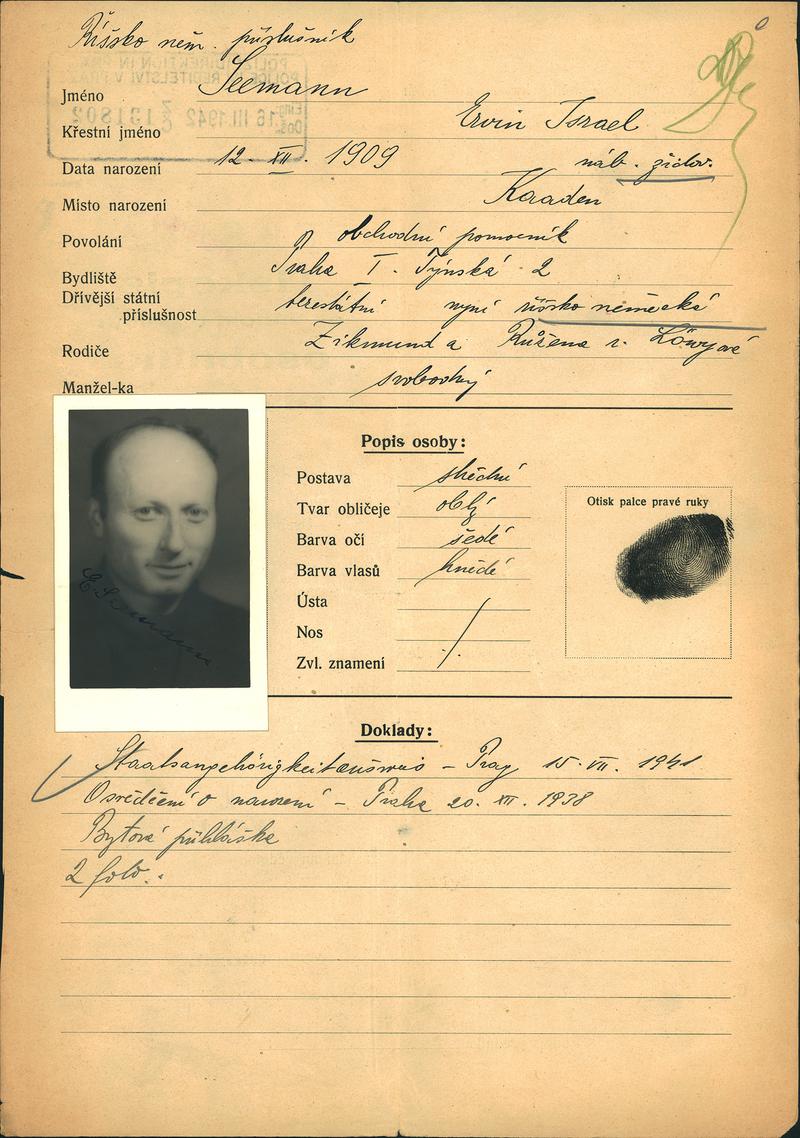 Říšsko něm. příslušník
POLIZEIDIREKTION IN PRAG
POLICEJNÍ ŘEDITELSTVÍ V PRAZE
Eing.: Doš.: 16 III. 1942 131802
Jméno Seemann
Křestní jméno Ervin Israel
Data narození 12. XII. 1909 náb. židov.
Místo narození Kaaden
Povolání obchodní pomocník
Bydliště Praha I. Týnská 2
Dřívější státní
příslušnost bezestátní nyní říšsko německá
Rodiče Zikmund a Růžena r. Löwyová
Manžel-ka svobodný
Popis osoby:
Postava střední
Tvar obličeje oblý
Barva očí šedé
Barva vlasů hnědé
Ústa
Nos
Zvl. znamení
Otisk palce pravé ruky
E. Seemann
Doklady:
Staatsangehörigkeitausweis - Prag 15. VII. 1941
Osvědčení o narození - Praha 20. XII. 1938
Bytová přihláška
2 foto.